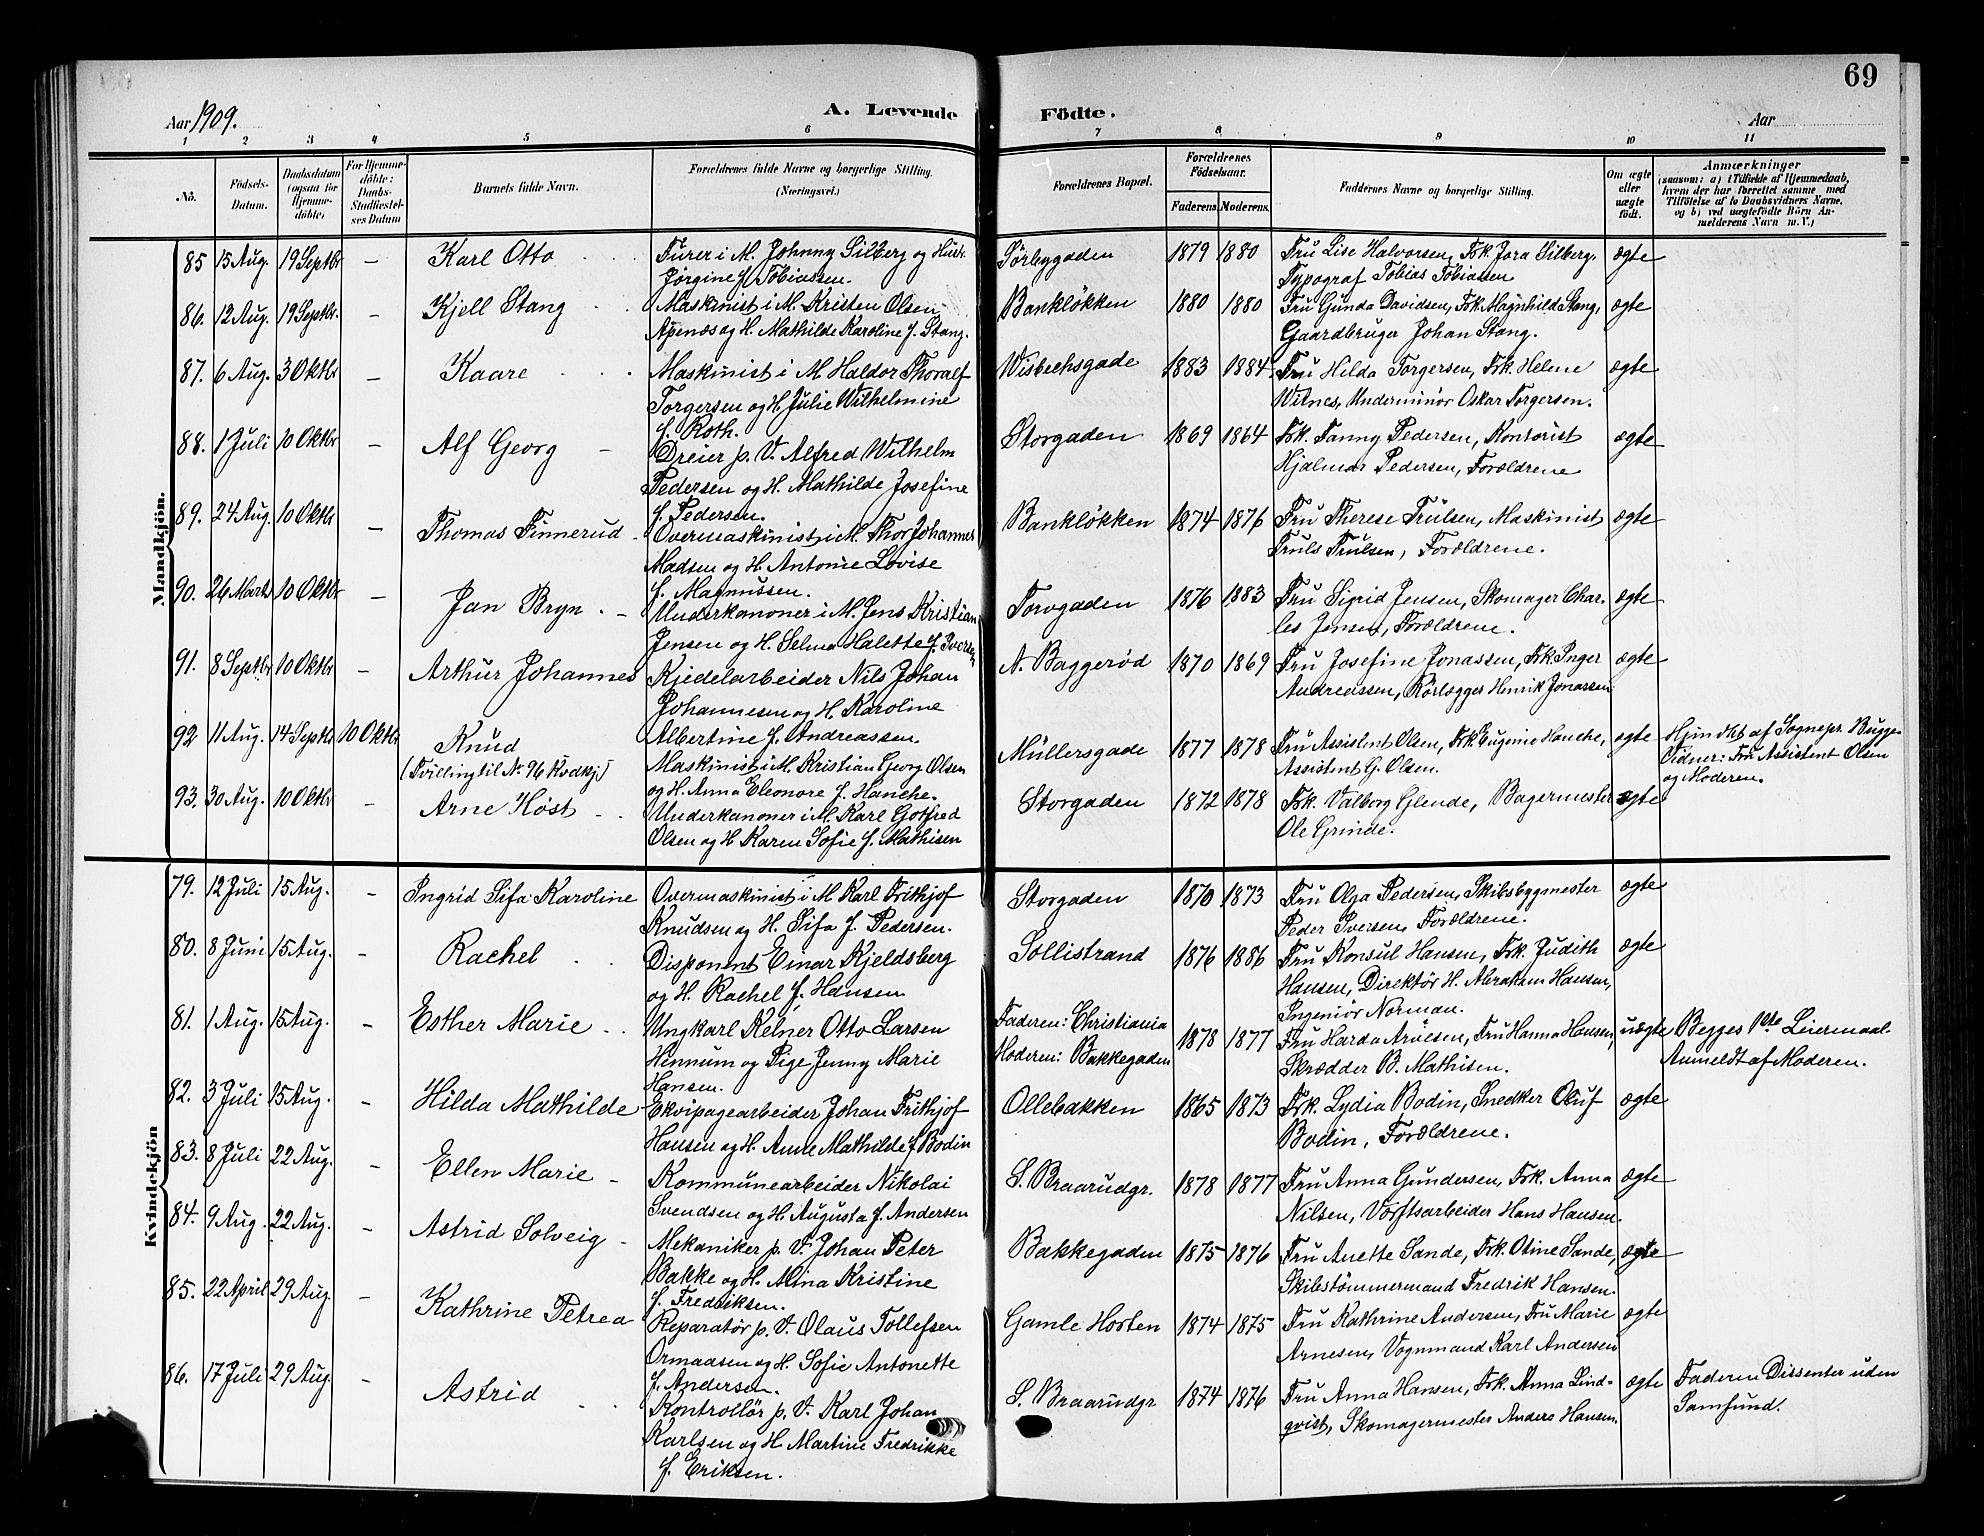 69
Aar 1909. A. Levende Födte. Aar
1 2 3 4 5 6 7 8 9 10 11
No. Födsels-Datum. Daabsdatum (ogsaa for Hjemme-döbte) For Hjemme-döbte: Daabs-Stadfæstel-ses Datum Barnets fulde Navn. Forældrenes fulde Navne og borgerlige Stilling. (Næringsvei.) Forældrenes Bopæl. Forældrenes Födselsaar. Faderens. Moderens. Faddernes Navne og borgerlige Stilling. Om ægte eller uægte födt. Anmærkninger (saasom: a) i Tilfælde af Hjemmedaab, hvem der har forrettet samme med Tilföielse af to Daabsvidners Navne, og b) ved uægtefödte Börn An-melderens Navn m. V.)
Mandkjön.
85 15 Aug. 19 Septbr – Karl Otto Furer i M. Johnny Silberg og Hustr. Sørbygaden 1879 1880 Fru Lise Halvorsen, Frk. Jora Silberg, ægte
Jørgine f. Tobiassen. Typograf Tobias Tobiassen
86. 12 Aug. 19 Septbr. – Kjell Stang Maskinist i M. Kristen Olsen Bankløkken 1880 1880 Fru Gunda Davidsen, Frk. Magnhild Stang, ægte
Apenæs og H. Mathilde Karoline f. Stang. Gaardbruger Johan Stang.
87. 6 Aug. 3 Oktbr – Kaare Maskinist i M. Haldor Thoralf Wisbechsgade 1883 1884 Fru Hilda Torgersen, Frk. Helene ægte
Torgersen og H. Julie Wilhelmine Witnes, Underminör Oskar Torgersen.
f. Roth.
88. 1 Juli 10 Oktbr – Alf Georg – Dreier p. V. Alfred Wilhelm Storgaden 1869 1864 Frk. Fanny Pedersen, Kontorist ægte
Pedersen og H. Mathilde Josefine Hjalmar Pedersen, Forældrene
f. Pedersen.
89. 24 Aug. 10 Oktbr – Thomas Finnerud Overmaskinist i M. Thor Johannes Bankløkken 1874 1876 Fru Therese Trulsen, Maskinist ægte
Madsen og H. Antonie Lovise Truls Trulsen, Forældrene.
f. Magnussen.
90. 26 Marts 10 Oktbr – Jan Bryn Underkanoner i M. Jens Kristian Torvgaden 1876 1883 Fru Sigrid Jensen, Skomager Char- ægte
Jensen og H. Selma Halette f. Iversen les Jensen, Forældrene.
91. 8 Septbr 10 Oktbr – Arthur Johannes Kjedelarbeider Nils Johan N. Baggerød 1870 1869 Fru Josefine Jonassen, Frk. Inger ægte
Johannesen og H. Karoline Andreassen, Rörlægger Henrik Jonassen
Albertine f. Andreassen.
92 11 Aug. 14 Septbr 10 Oktbr Knud Maskinist i M. Kristian Georg Olsen Müllersgade 1877 1878 Fru Assistent Olsen, Frk. Eugenie Hanche, ægte Hjemdøbt af Sognepr. Bugge.
(Tvilling til No. 96 Kvdkj.) og H. Anna Eleonore f. Hanche. Assistent G. Olsen. Vidner: Fru Assistent Olsen
og Moderen.
93. 30 Aug. 10 Oktbr – Arne Høst Underkanoner i M. Karl Gotfred Storgaden 1872 1878 Frk. Valborg Glende, Bagermester ægte
Olsen og H Karen Sofie f. Mathisen Ole Grinde.
Kvindekjön
79. 12 Juli 15 Aug. – Ingrid Sifa Karoline Overmaskinist i M Karl Frithjof Storgaden 1870 1873 Fru Olga Pedersen, Skibsbygmester ægte
Knudsen og H. Sifa f. Pedersen. Peder Iversen, Forældrene.
80. 8 Juni 15 Aug. – Rachel Disponent Einar Kjeldsberg Sollistrand 1876 1886 Fru Konsul Hansen, Frk. Judith ægte
og H. Rachel f. Hansen Hansen, Direktör H. Abraham Hansen,
Ingeniör Norman.
81. 1 Aug. 15 Aug. – Esther Marie Ungkarl Kelner Otto Larsen Faderen: Christiania 1878 1877 Fru Harda Arnesen, Fru Hanna Hansen, uægte Begges 1ste Leiermaal.
Hennum og Pige Jenny Marie Moderen: Bakkegaden Skrædder B. Mathisen. Anmeldt af Moderen.
Hansen.
82. 3 Juli 15 Aug. – Hilda Mathilde Ekvipagearbeider Johan Frithjof Ollebakken 1865 1873 Frk. Lydia Bodin, Snedker Oluf ægte
Hansen og H. Anne Mathilde f. Bodin Bodin, Forældrene.
83. 8 Juli 22 Aug. – Ellen Marie – Kommunearbeider Nikolai S. Braarudgr. 1878 1877 Fru Anna Gundersen, Frk. Anna ægte
Svendsen og H. Augusta f. Andersen Nilsen, Værftsarbeider Hans Hansen.
84. 9 Aug. 22 Aug. – Astrid Solveig – Mekaniker p. V. Johan Peter Bakkegaden 1875 1876 Fru Anette Sande, Frk. Otine Sande, ægte
Bakke og H. Mina Kristine Skibstömmermand Fredrik Hansen.
f. Fredriksen.
85. 22 April 29 Aug. – Kathrine Petrea Reparatør p. V. Olaus Tollefsen Gamle Horten 1874 1875 Fru Kathrine Andersen, Fru Marie ægte
Ormaasen og H. Sofie Antonette Arnesen, Vognmand Karl Andersen
f. Andersen.
86. 17 Juli 29 Aug. – Astrid Kontrollör p. V. Karl Johan S. Braarudgr 1874 1876 Fru Anna Hansen, Frk. Anna Lind- ægte Faderen Dissenter uden
Karlsen og H. Martine Fredrikke qvist, Skomagermester Anders Hansen. Samfund.
f. Eriksen.